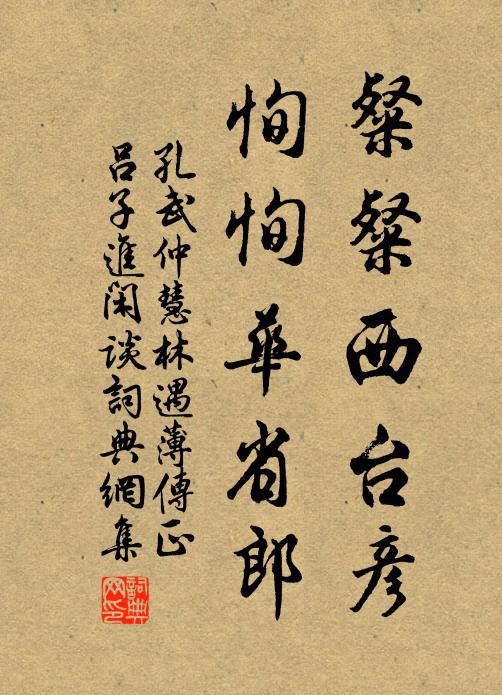 粲粲西台彥
恂恂華省郎
孔武仲慧林遇薄傳正
呂子進閑談詞典網集
詞典网印